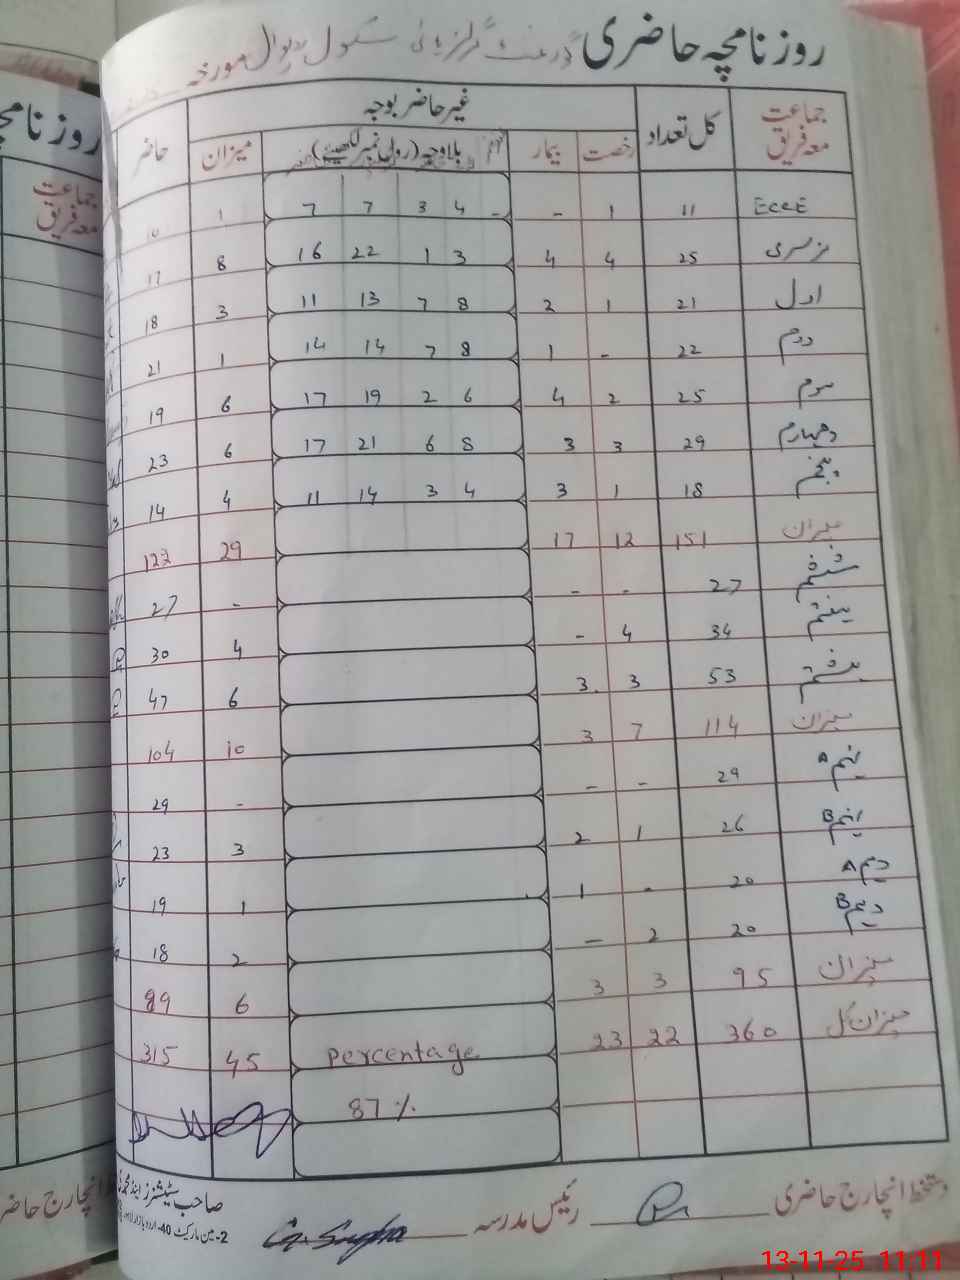 روزنامچہ حاضری گورنمنٹ گرلز ہائی سکول مورخہ
جماعت معہ فریق کل تعداد غیر حاضر بوجہ حاضر
رخصت بیمار بلاوجہ (رولنمبر لکھیئے) میزان
ECCE 11 1 - - 4 3 7 7 1 10
نرسری 25 4 4 3 1 22 16 8 17
اول 21 1 2 8 7 13 11 3 18
دوم 22 - 1 8 7 14 14 1 21
سوم 25 2 4 6 2 19 17 6 19
چہارم 29 3 3 8 6 21 17 6 23
پنجم 18 1 3 4 3 14 11 4 14
میزان 151 12 17 29 122
ششم 27 - - - 27
ہفتم 34 4 - 4 30
ہشتم 53 3 3 6 47
میزان 114 7 3 10 104
نہم A 29 - - - 29
نہم B 26 1 2 3 23
دہم A 20 - 1 1 19
دہم B 20 2 - 2 18
میزان 95 3 3 6 89
میزان کل 360 22 23 Percentage 45 315
87 %
دستخط انچارج حاضری رئیس مدرسہ
صاحب سٹیشنرز اینڈ
2- مین مارکیٹ 40- اردو بازار
روزنامچہ
جماعت معہ فریق
انچارج حاضر
13-11-25 11:11